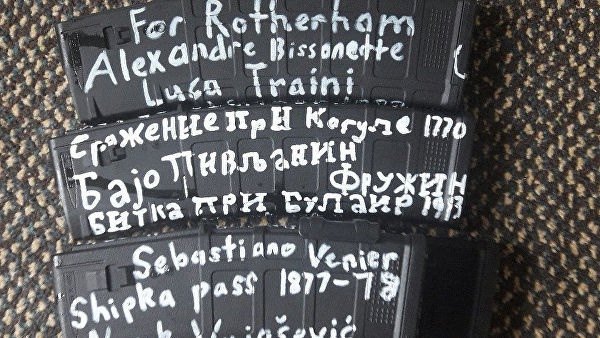 For Rotherham
Alexandre Bissonette
Luca Traini
Сражение при Кагуле 1770
Бајо Пивљанин
Фружин
Битка при Булаир 1913
Sebastiano Venier
Shipka pass 1877-78